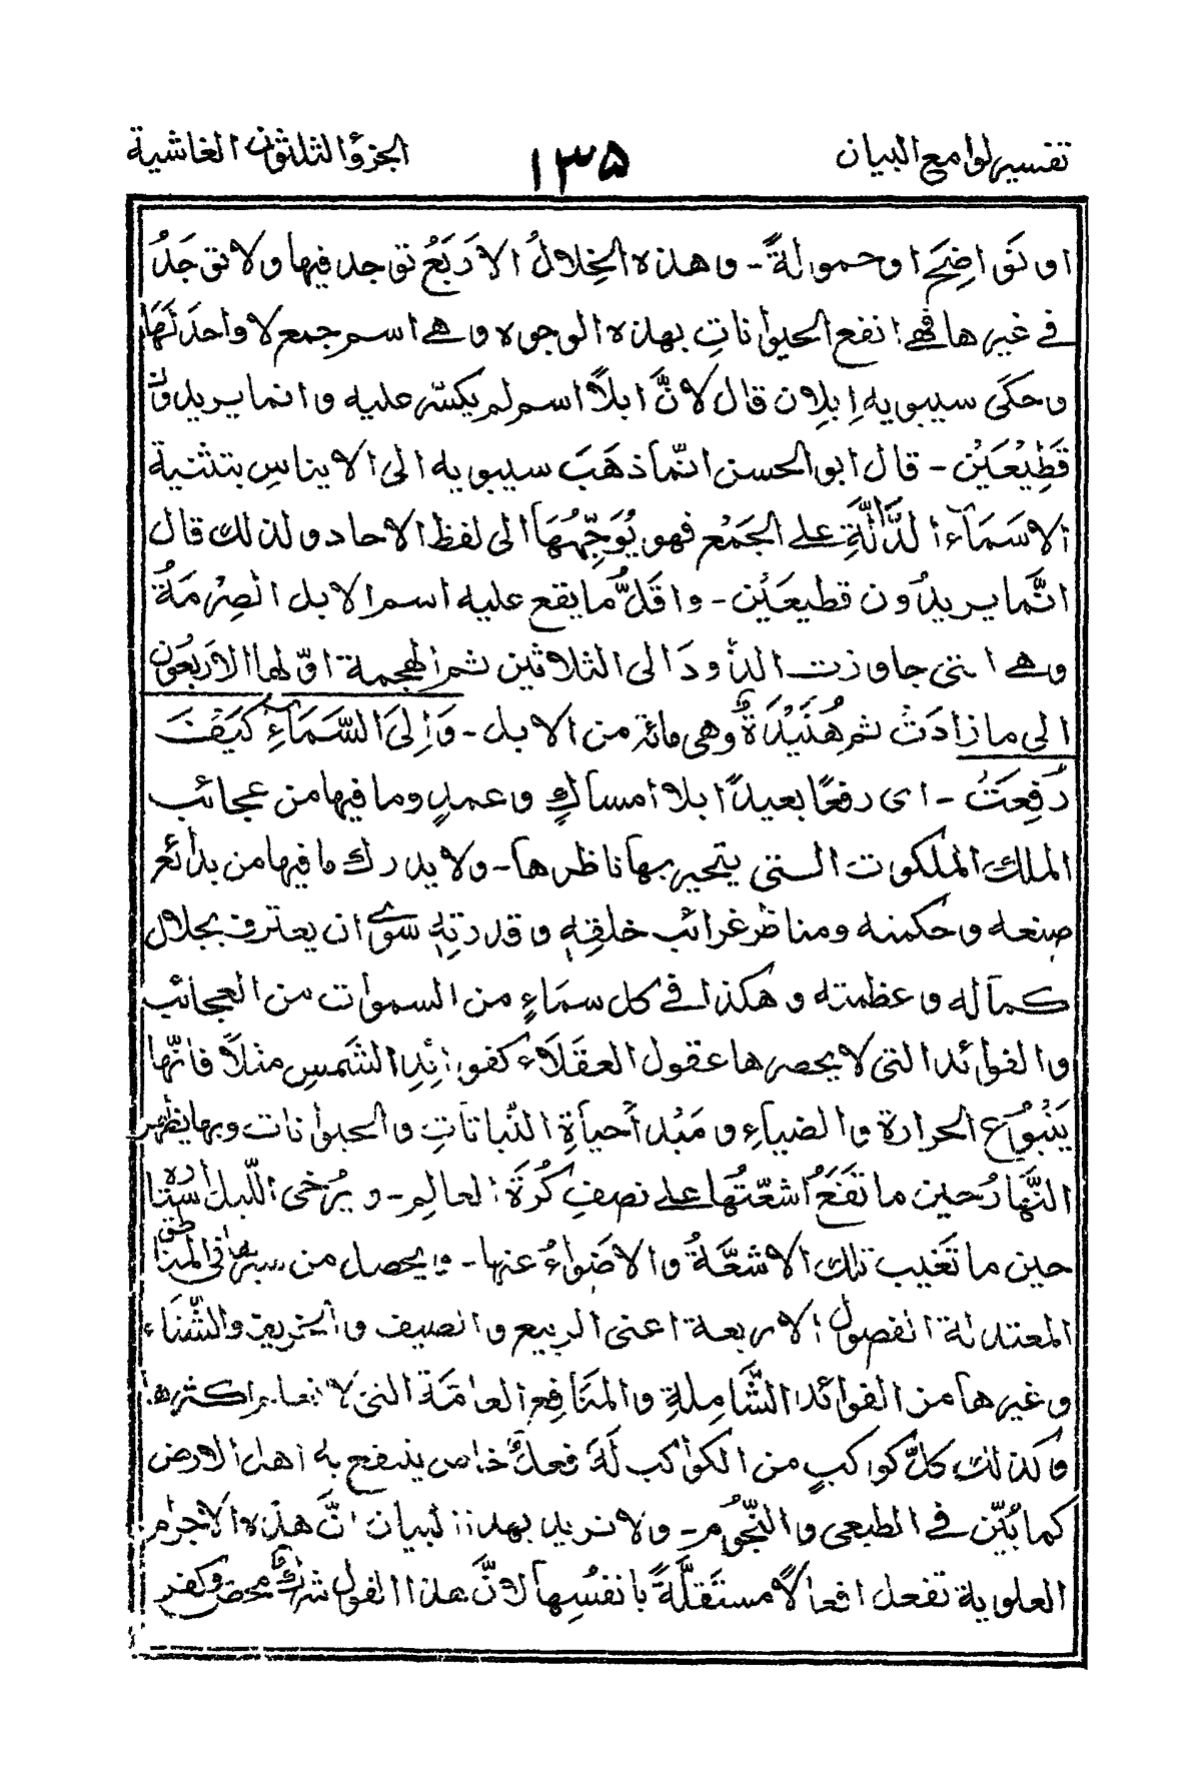 تفسیر لوامع البیان ۱۳۵ الجزؤ الثلثون الغاشیة
او نَوَاضِحَ او حمولةً - وهذه الخِلالُ الاَرْبَعُ توجد فیها ولا توجَدُ
فی غیرها فهی انفع الحیوانَاتِ بهذه الوجوه وهی اسم جمع لا واحدَ لَهَا
وحکَی سیبویه اِبِلِان قال لِاَنَّ ابلاً اسم لم یکسّر علیه وانما یریدون
قَطِیْعَیْن - قال ابو الحسن انّما ذهَبَ سیبویه الی الایناسِ بتثنیة
الاسَمَآء الدَّالَّةِ علی الجَمْع فهو یُوَجِّهُهَا الی لفظ الاحاد ولذلك قال
انَّما یریدُون قطیعَیْن - واقَلُّ ما یقع علیه اسم الابل الصِرْمَةُ
وهی التی جاوزت الذَّودَ الی الثلاثین ثم الهجمة اوّلها الاَرْبَعُون
الی ما زادَتْ ثم هُنَیْدَةٌ وهی مائة من الابل - وَاِلَی السَّمَآءِ کَیْفَ
رُفِعَتْ - ای رفعًا بعیدًا بلا امساكٍ وعمدٍ وما فیها من عجائب
الملك الملکوت التی یتحیر بها ناظرها - ولا یدرك ما فیها من بدائع
صنعه وحکمته ومناظر غرائب خلقِهٖ وقدرتِهٖ سوٰی ان یعترف بجلال
کماله وعظمته وهکذا فی کل سمَاءٍ من السموات من العجائب
والفوائد التی لا یحصرها عقول العقَلَاء کفوائِدِ الشَّمسِ مثلاً فانّها
یَنْبُوْع الحرارة والضیاءِ ومَبْدأ حیاةِ النَّباتَاتِ والحیوانات وبها یظهر
النَّهَارُ حین ما تَقَعُ اشعّتُها علی نصفِ کُرَةِ العالِمِ - ویُرْخی اللَّیل استاره
حین ما تَغیب تلك الاشعَّةُ والاضواءُ عنها - ویحصل من سیرها فی المناطق
المعتدلة الفصول الاربعة اعنی الربیع والصیف والخریف والشِّتَاء
وغیرها من الفوائد الشَّامِلةِ والمنَافِعِ العامّةِ التی لا نعلم اکثرها
وکذلك کلُّ کواکبٍ من الکواکب لَهٗ فعلٌ خاص ینتفع به اهل الارض
کما بُیِّن فی الطبعی والنُّجُوم - ولا نرید بهذا البیان انَّ هذه الاجرام
العلویة تفعل افعالًا مستَقلَّةً بانفُسِها لانَّ هذا القول شرك محض وکفر